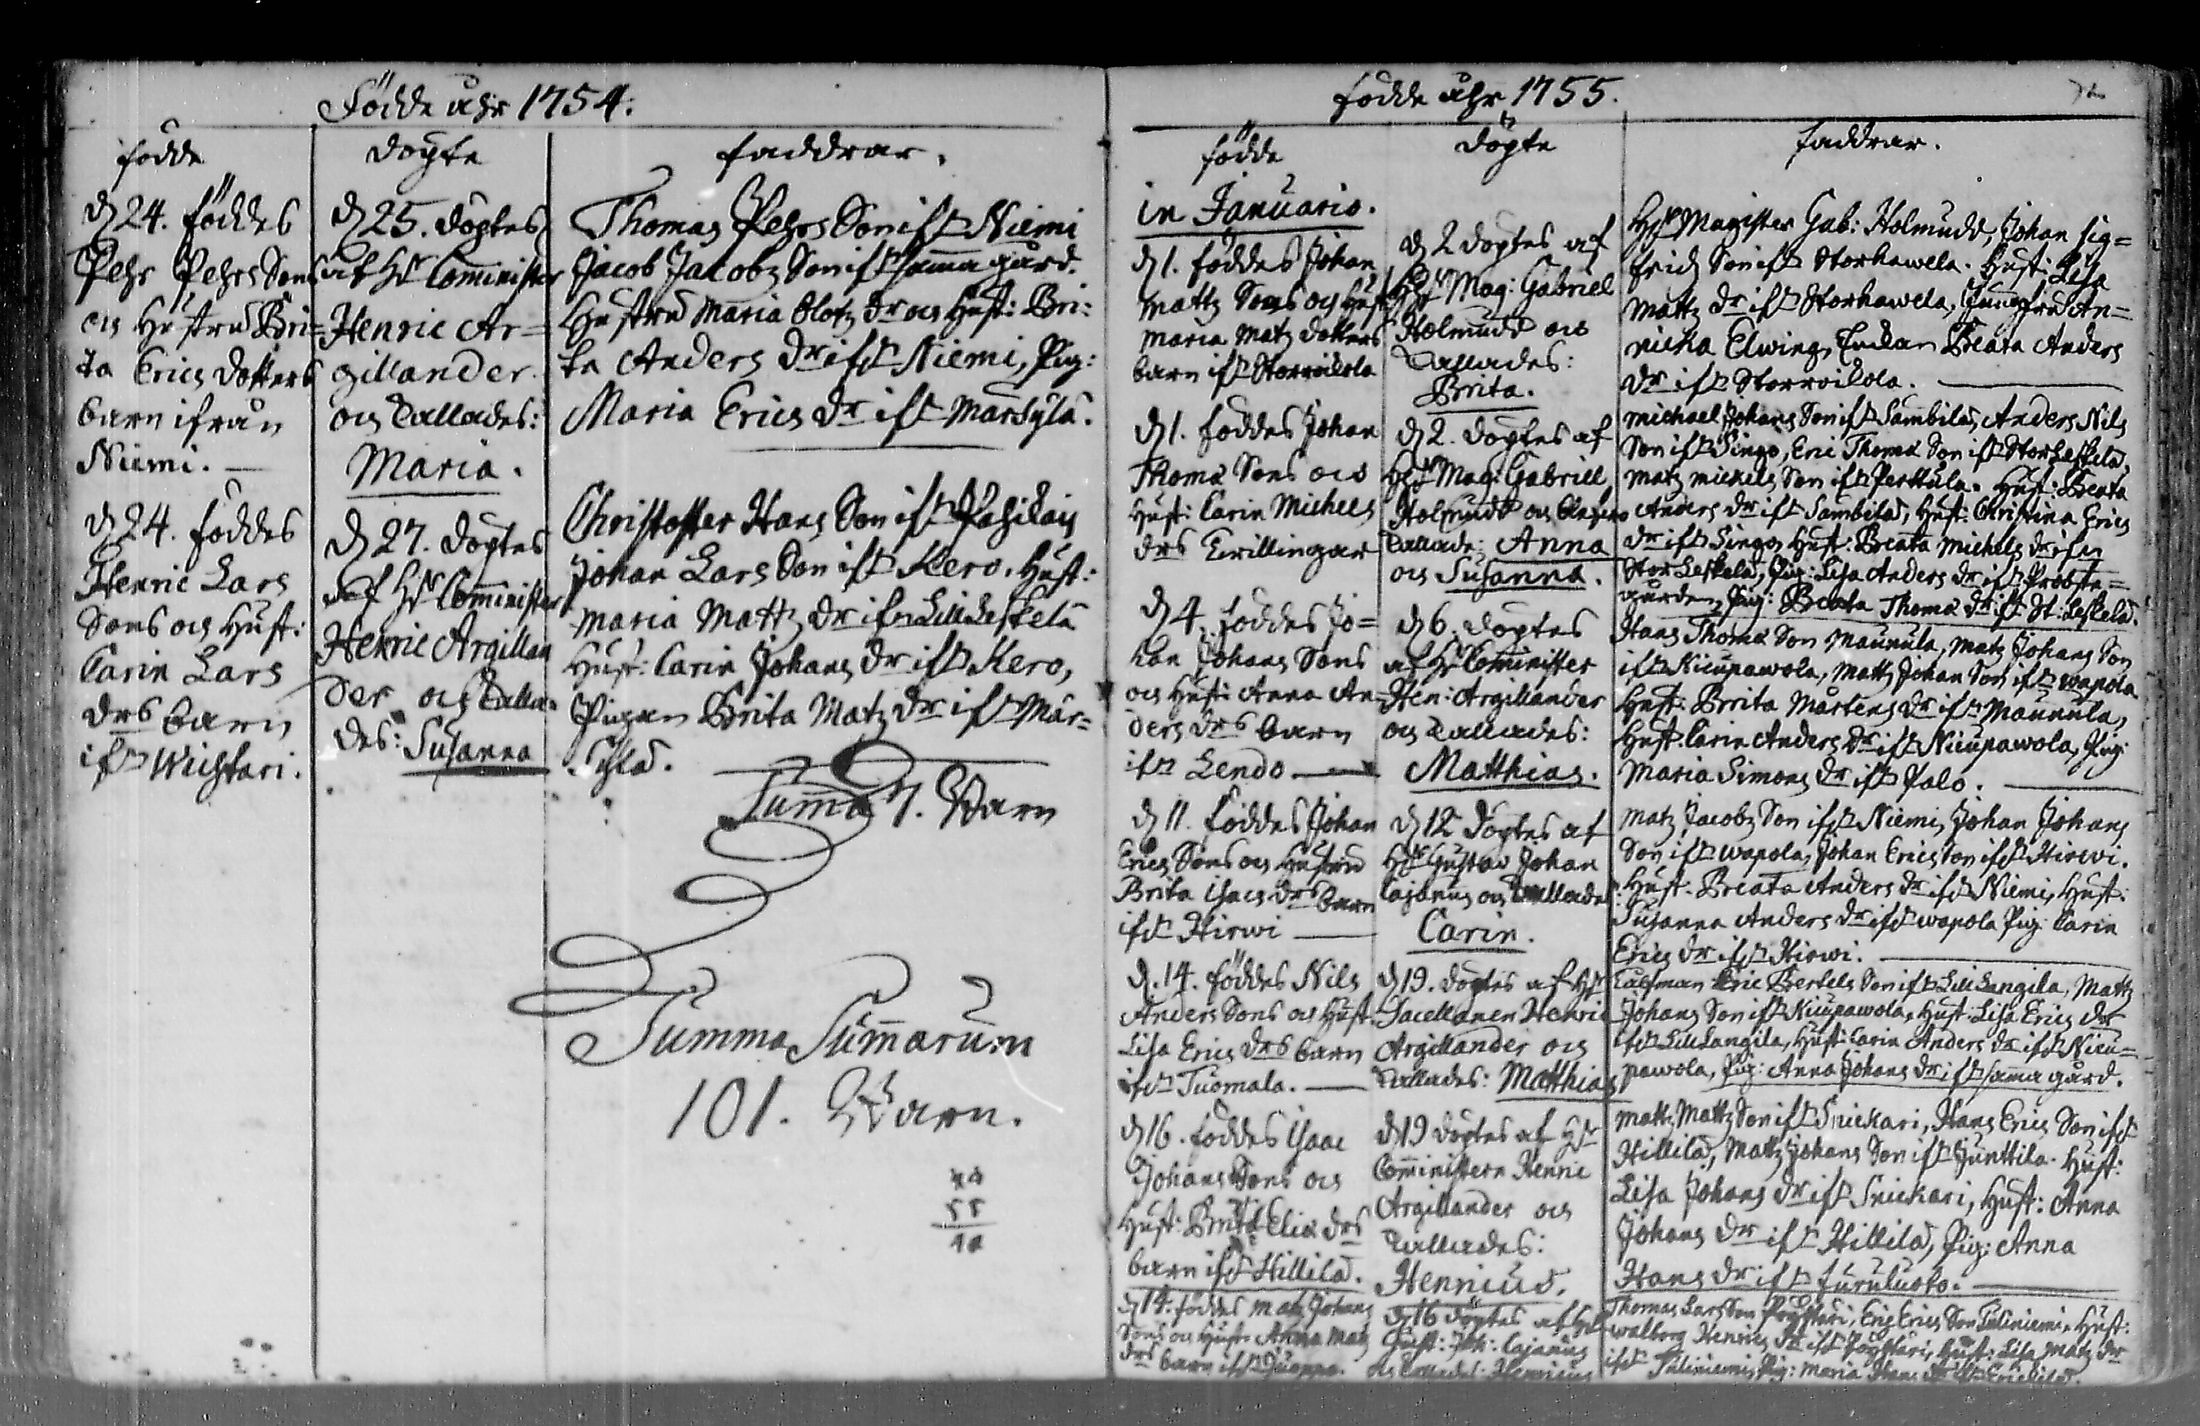 Födde åhr 1754.
födde
döpte
faddrar.
d 24. föddes
Pehr Pehrs Sons
och Hustru Bri=
ta Erics dotters
barn ifrån
Niemi.
d 25. döptes
af Hr Comminister
Henric Ar=
gillander
och kallades:
Maria.
Thomas Pehrs Son ifr Niemi
Jacob Jacobs Son ifr samma gård.
Hustru Maria Olofz dr och Hust: Bri:
ta Anders dr ifr Niemi, Pig:
Maria Erics dr ifr Marsylä.
d 24. föddes
Henric Lars
Sons och Hust:
Carin Lars
drs barn
ifr Wichtari.
d 27. döptes
af Hr Comminister
Henric Argillan
der och kalla=
des: Susanna
Christoffer Hans Son ifr
Johan Lars Son ifr Kero. Hust:
Maria Mattz dr ifr Lill Leskelä
Hust: Carin Johans dr ifr Kero,
Pigan Brita Matz dr ifr Mar=
sylä.
Summa 7. Barn
Summa Summarum
101. Barn.
födde åhr 1755.
födde
döpte
faddrar.
in Januario.
d 1. föddes Johan
Mattz Sons och Hust
Maria Matz dotters
barn ifr Storroikola
d 2 döptes af
Hr Mag: Gabriel
Holmudd och
kallades:
Brita.
Hr Magister Gab: Holmudd, Johan Sig=
frids Son ifr Storhawela. Hust: Lisa
Mattz dr ifr Storhawela, Jungfru An=
nicka Elwing, Enckan Beata Anders
dr ifr Storroikola.
d 1. föddes Johan
Thomæ Sons och
Hust: Carin Michels
drs Twillingar
d 2. döptes af
Hr Mag: Gabriel
Holmudd och
kallade: Anna
och Susanna.
Michael Johans Son ifr Sambila, Anders Nils
Son ifr Singo, Eric Thomæ Son ifr Storleskelä,
Matz Michels Son ifr Perttula. Hust: Beata
Anders dr ifr Sambila, Hust: Christina Erics
dr ifr Singo, Hust: Beata Michels dr ifrn
Stor Leskelä, Pig: Lisa Anders dr ifr Probste=
gården, Pig: Breata Thomæ dr ifr St: Leskelä.
d 4. föddes Jo=
han Johans Sons
och Hust: Anna An=
ders drs barn
ifr Lendo
d 6. döptes
af Hr Comminister
Hen: Argillander
och kallades:
Matthias.
Hans Thomæ Son Maunula, Matz Johans Son
ifr Niicupawola, Mattz Johan Son ifr Wapola
Hust: Brita Mårtens dr ifr Maunula,
Hust: Carin Anders dr ifr Nicupawola, Pig:
Maria Simons dr ifr Palo.
d 11. föddes Johan
Erics Sons och Hustru
Brita Isacs drs barn
ifr Hirwi
d 12 döptes af
Hr Gustav Johan
Cajanus och kallades:
Carin.
Matz Jacobz Son ifr Niemi, Johan Johans
Son ifr Wapola, Johan Erics Son ifr Hirwi.
Hust: Breata Anders dr ifr Niemi, Hust:
Susanna Anders dr ifr Wapola Pig: Carin
Erics dr ifr Hirwi.
d. 14. föddes Nils
Anders Sons och Hust:
Lisa Erics drs barn
ifr Tuomala.
d 19. döptes af Hr
Sacellanen Henric
Argillander och
kallades: Matthias
Eric Bertels Son ifr Lill Langila, Mattz
Johans Son ifr Nicupawola, Hust: Lisa Erics dr
ifr Lill Langila, Hust: Carin Anders dr ifr Nicu=
pawola, Pig: Anna Johans dr ifr samma gård.
d 16. föddes Isaac
Johans Sons och
Hust: Brita Eliæ drs
barn ifr Hillilä.
d 19 döptes af Hr
Comministern Henric
Argillander och
kallades:
Henricus.
Mattz Mattz Son ifr Snickari, Hans Erics Son ifr
Hillilä, Mattz Johans Son ifr Junttila. Hust:
Lisa Johans dr ifr Snickari, Hust: Anna
Johans dr ifr Hillilä, Pig: Anna
Hans dr ifr Furuluoto.
d 14. föddes Matz Johans
Sons och Hust: Anna Matz
drs barn ifr Juoppa.
d 16 döptes af Hr
Gust: Joh: Cajanus
och kallades: Henricus
Thomas Lars Son Pöyhtäri, Eric Erics Son Tuliniemi, Hust:
Walborg Henrics dr ifr Pöyhtäri, Hust: Lisa Matz dr
ifr Tuliniemi, Pig: Maria Hans dr ifr